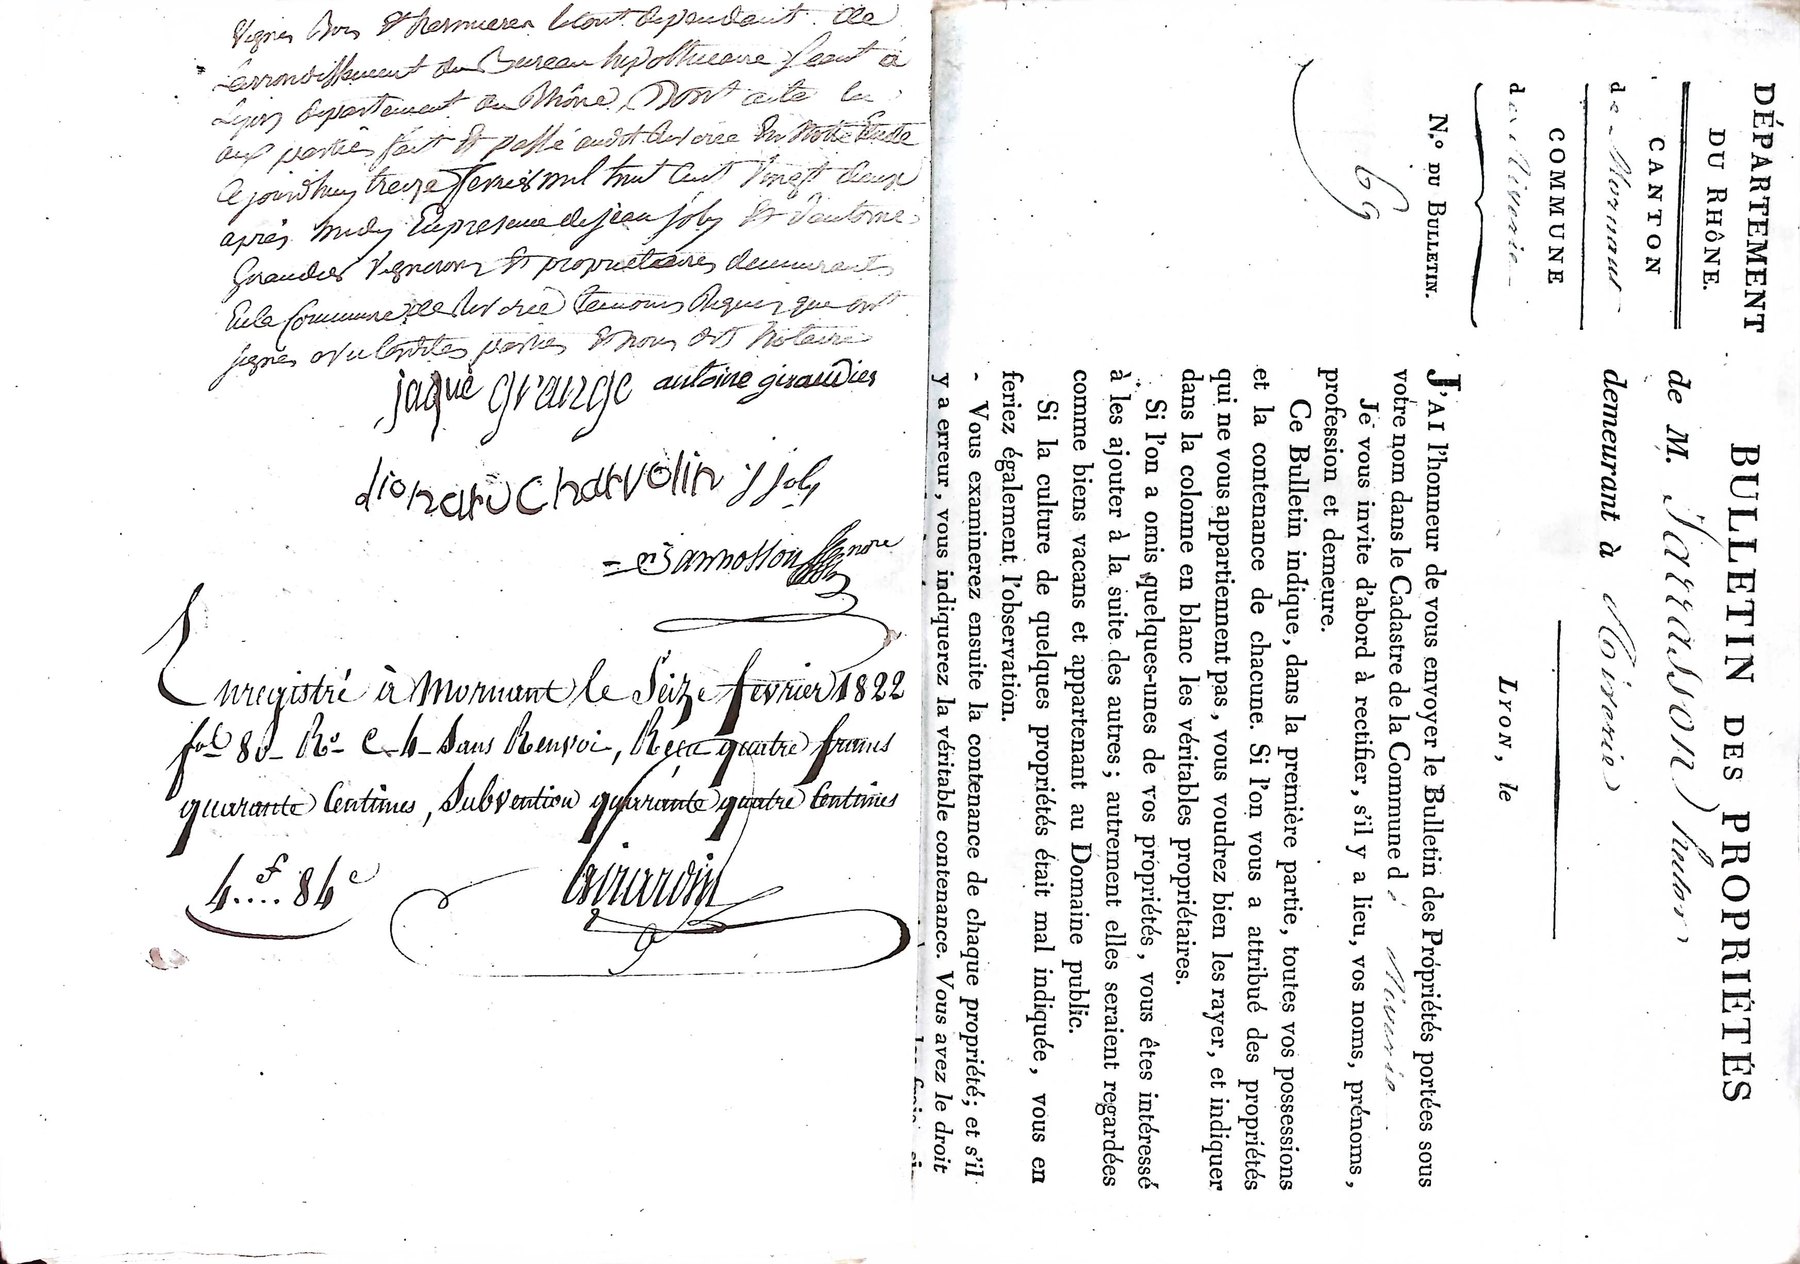 Vignes Bois et hermieres le tout dependant de
Larrondissement du Bureau hypothecaire seant à
Lyon departement du Rhône, Dont acte lu
aux parties fait et passé audit Riverie En notre Etude
Cejourdhuy treize fevrier mil huit cent vingt deux
après midy En presence de jean joly et d'antoine
Giraudier Vignerons et proprietaires demeurants
En la Commune de Riverie temoins Requis que ont
signés avec lesdites parties et nous dit Notaire
jaque grange antoine giraudier
dionard Charvolin j joly
Enregistré à Mornant le Seize fevrier 1822
fol 80 Ro C. 4 Sans Renvoi, Reçu quatre francs
quarante Centimes, Subvention quarante quatre Centimes
4f....84c
Girardin
DÉPARTEMENT
DU RHÔNE.
CANTON
de Mornant
COMMUNE
de Riverie
N.º DU BULLETIN.
69
BULLETIN DES PROPRIÉTÉS
de M. Jarrasson
demeurant à Riverie
LYON, le
J'AI l'honneur de vous envoyer le Bulletin des Propriétés portées sous
votre nom dans le Cadastre de la Commune de Riverie
Je vous invite d'abord à rectifier, s'il y a lieu, vos noms, prénoms,
profession et demeure.
Ce Bulletin indique, dans la première partie, toutes vos possessions
et la contenance de chacune. Si l'on vous a attribué des propriétés
qui ne vous appartiennent pas, vous voudrez bien les rayer, et indiquer
dans la colonne en blanc les véritables propriétaires.
Si l'on a omis quelques-unes de vos propriétés, vous êtes intéressé
à les ajouter à la suite des autres; autrement elles seraient regardées
comme biens vacans et appartenant au Domaine public.
Si la culture de quelques propriétés était mal indiquée, vous en
feriez également l'observation.
Vous examinerez ensuite la contenance de chaque propriété; et s'il
y a erreur, vous indiquerez la véritable contenance. Vous avez le droit